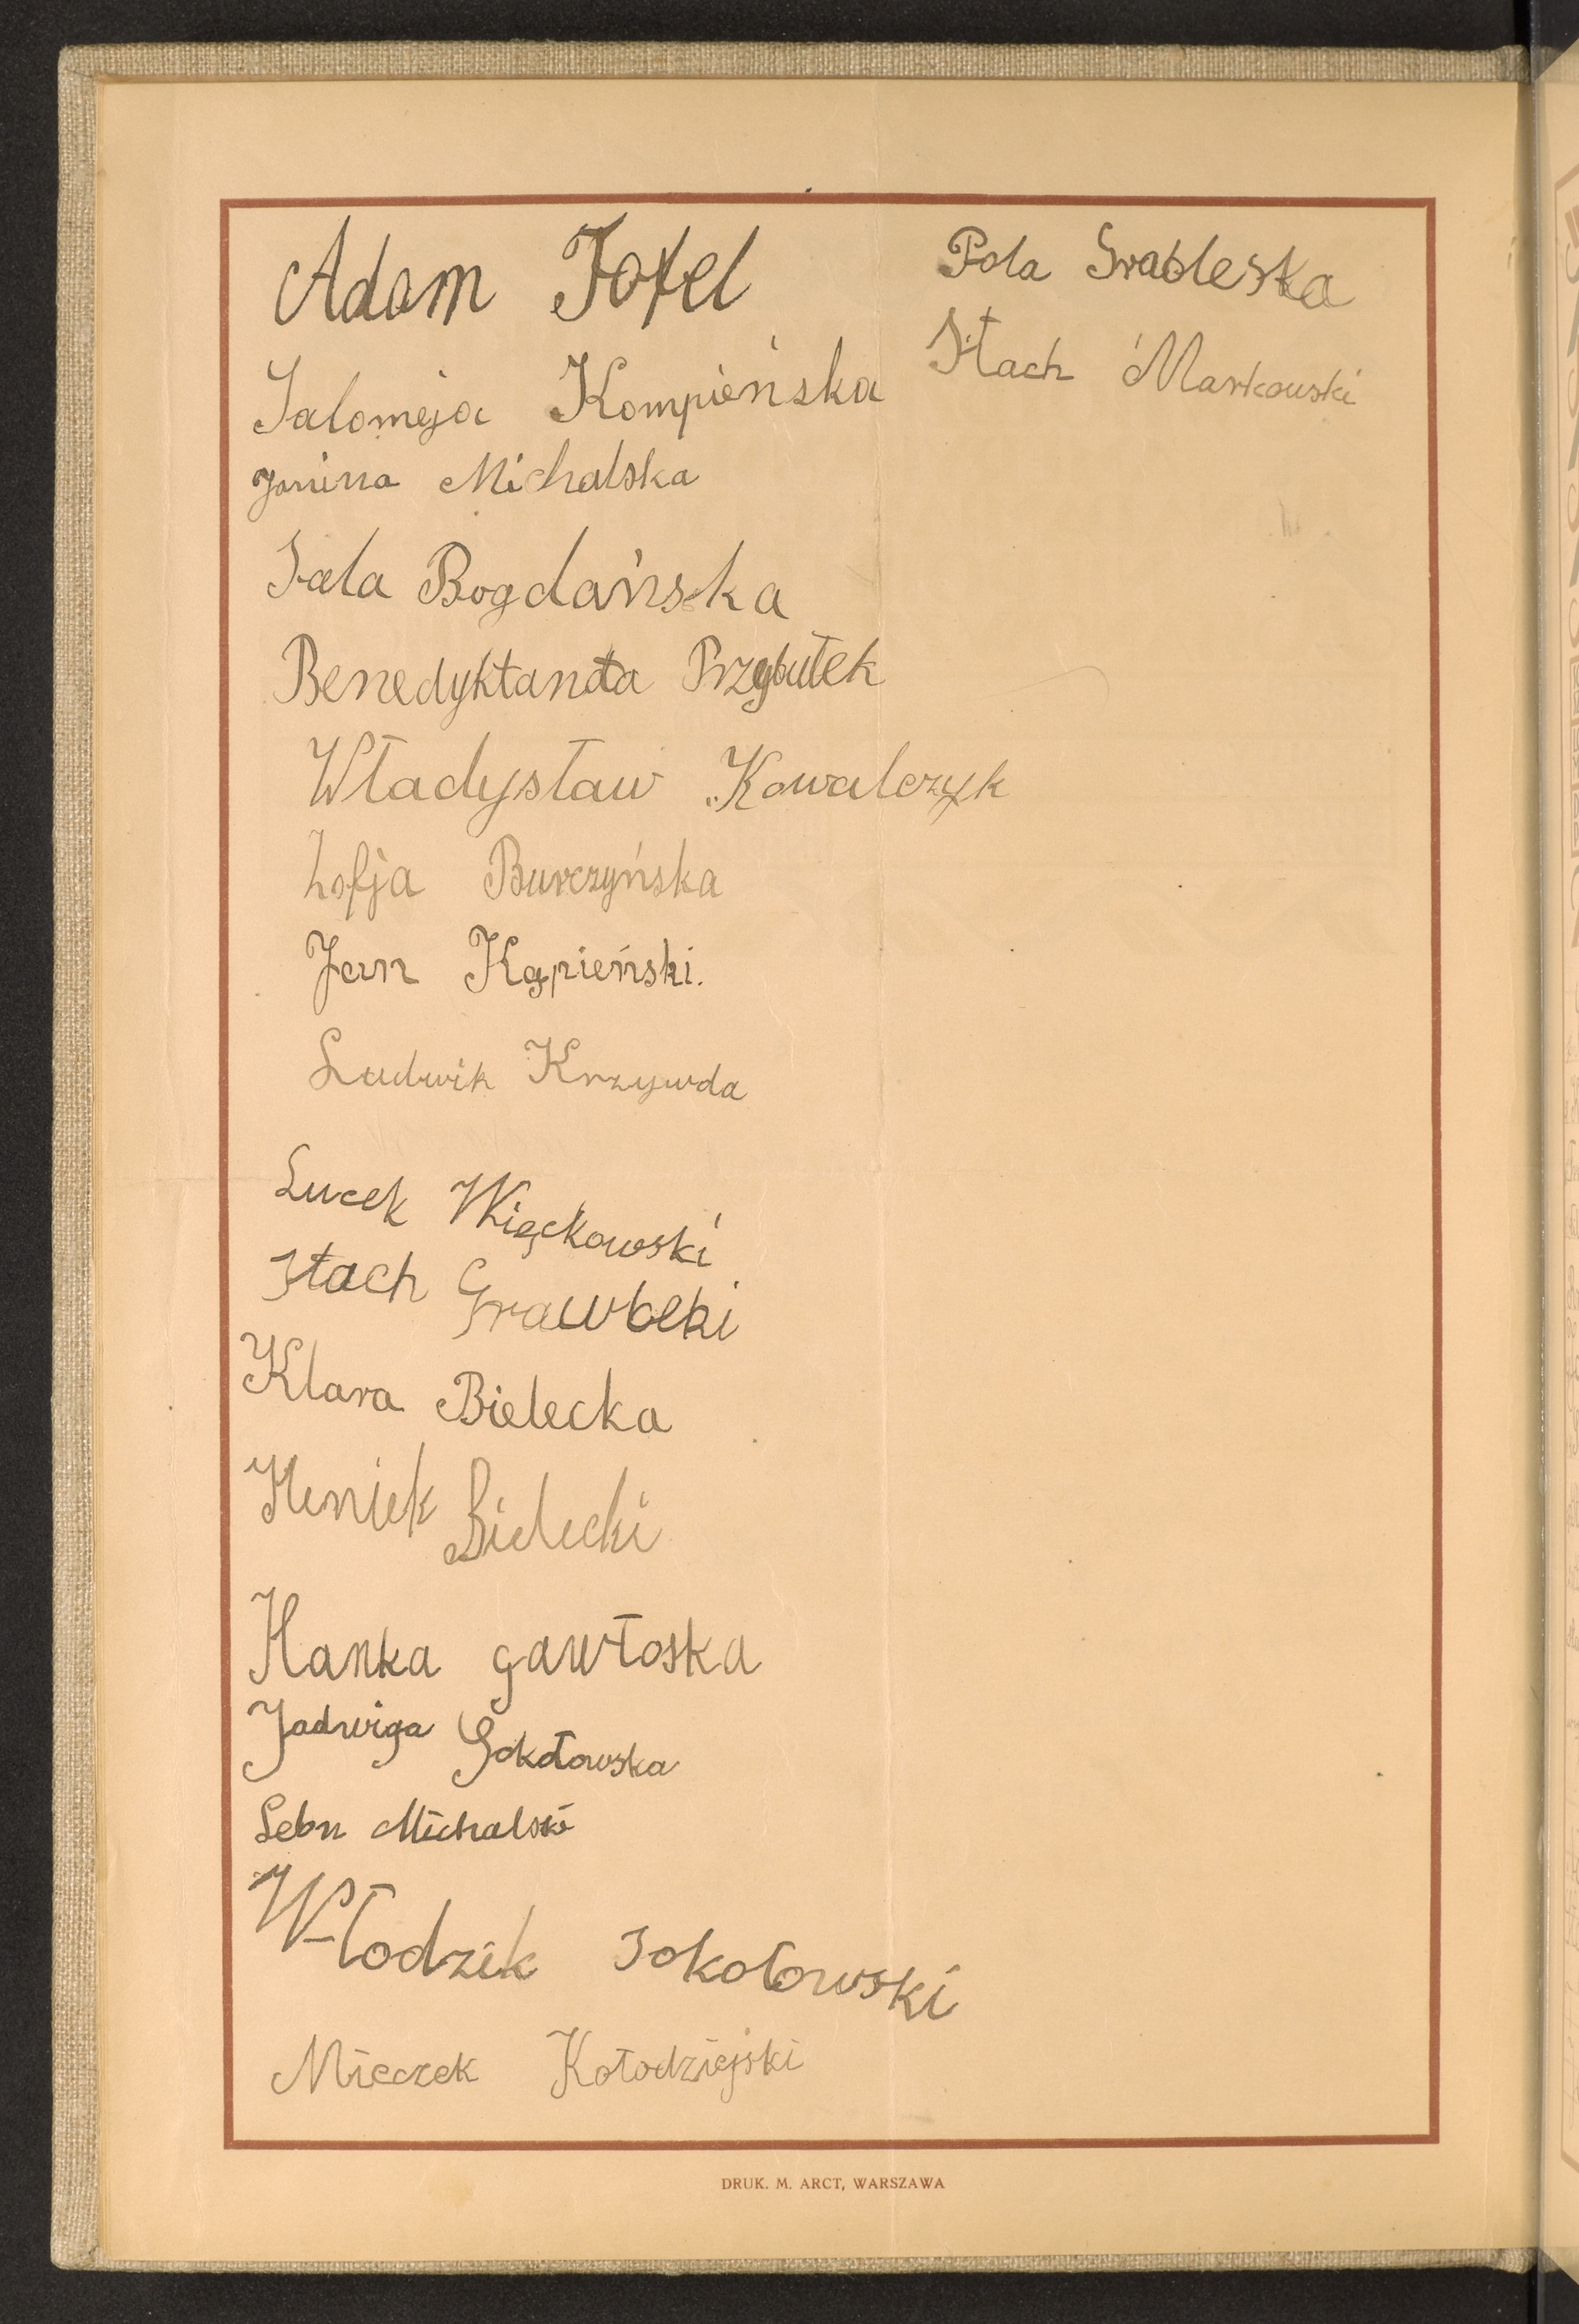 Adam Fofel
Salomeja Kompieńska
Janina Michalska
Sala Bogdańska
Benedyktanta Przybułek
Władysław Kowalczyk
Zofja Burczyńska
Jan Kąpieński.
Ludwik Krzywda
Lucek Więckowski
Stach Grawbcki
Klara Bielecka
Heniek Bielecki
Hanka gawłoska
Jadwiga Sokołowska
Leon Michalski
Włodzik Sokołowski
Mieczek Kołodziejski
Pola Grableska
Stach Markowski
DRUK. M. ARCT, WARSZAWA